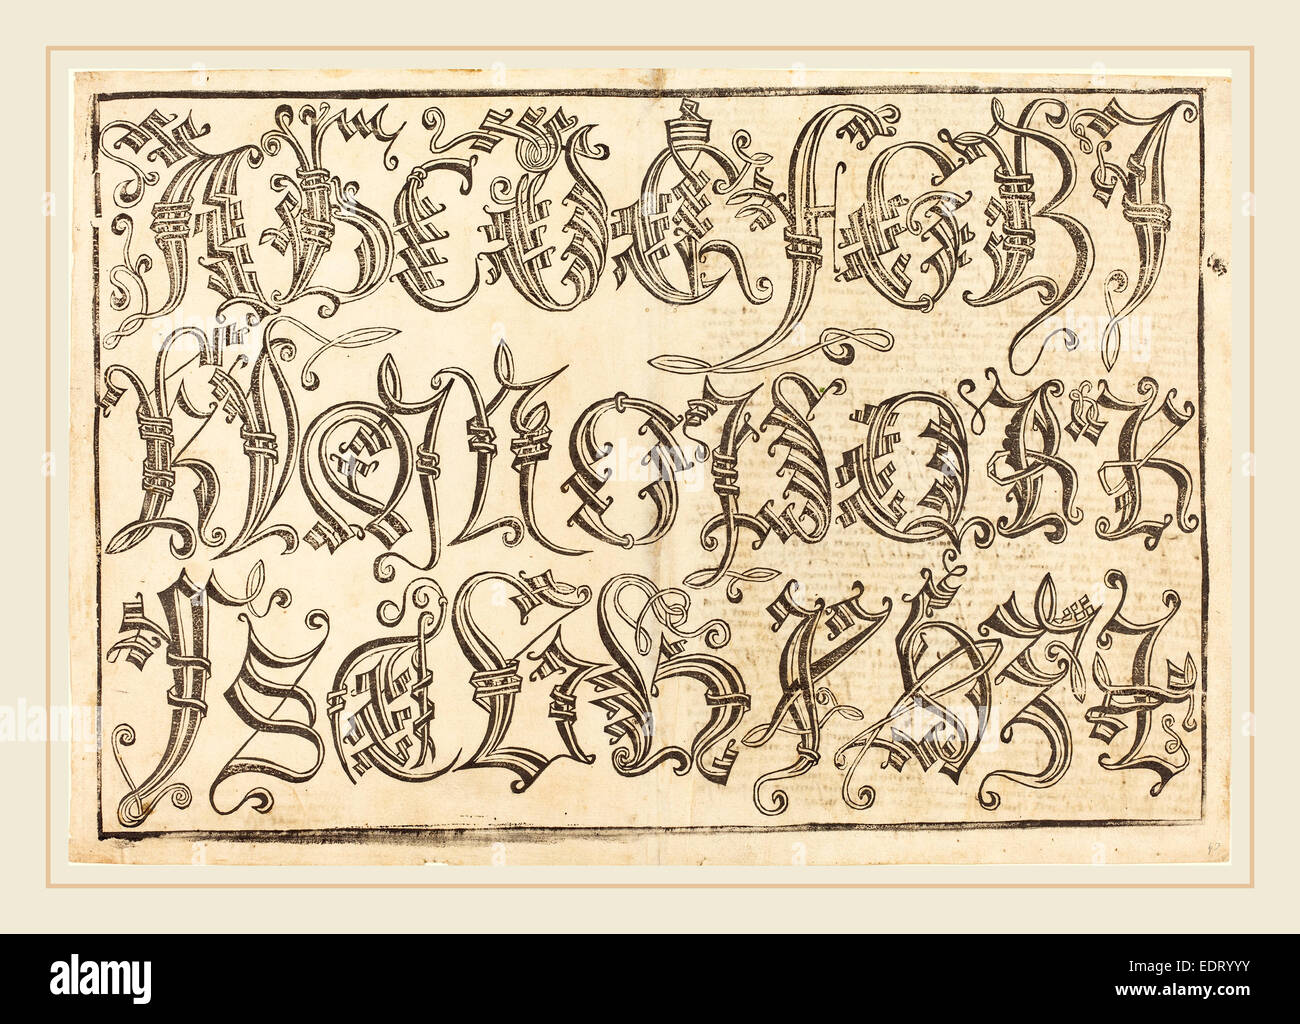 A B C D E F G H I
K L M N O P Q R R
S S T V X Y Z Z
alamy
Image ID: EDRYYY
www.alamy.com